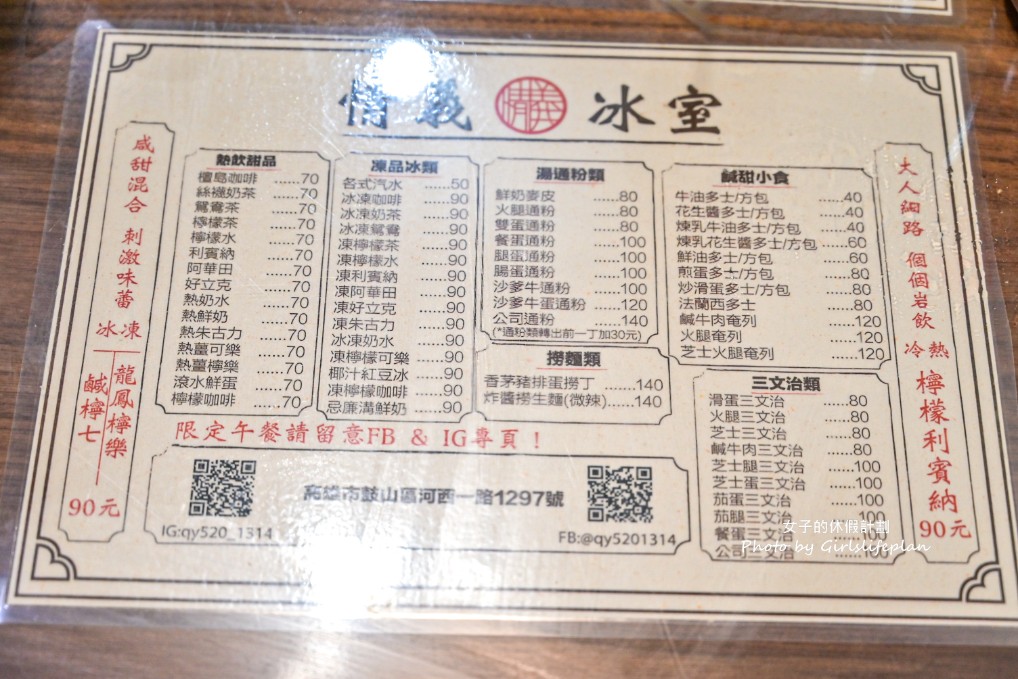 情義 情義 冰室
咸甜混合 刺激味蕾
冰凍
龍鳳檸樂
鹹檸七
90元
熱飲甜品
檀島咖啡 ......70
絲襪奶茶 ......70
鴛鴦茶 ......70
檸檬茶 ......70
檸檬水 ......70
利賓納 ......70
阿華田 ......70
好立克 ......70
熱奶水 ......70
熱鮮奶 ......70
熱朱古力 ......70
熱薑可樂 ......70
熱薑檸樂 ......70
滾水鮮蛋 ......70
檸檬咖啡 ......70
凍品冰類
各式汽水 ......50
冰凍咖啡 ......90
冰凍奶茶 ......90
冰凍鴛鴦 ......90
凍檸檬茶 ......90
凍檸檬水 ......90
凍利賓納 ......90
凍阿華田 ......90
凍好立克 ......90
凍朱古力 ......90
冰凍奶水 ......90
凍檸檬可樂 ......90
椰汁紅豆冰 ......90
凍檸檬咖啡 ......90
忌廉溝鮮奶 ......90
湯通粉類
鮮奶麥皮 ......80
火腿通粉 ......80
雙蛋通粉 ......80
餐蛋通粉 ......100
腿蛋通粉 ......100
腸蛋通粉 ......100
沙爹牛通粉 ......100
沙爹牛蛋通粉 ......120
公司通粉 ......140
(*通粉類轉出前一丁加30元)
撈麵類
香茅豬排蛋撈丁 ......140
炸醬撈生麵(微辣)......140
鹹甜小食
牛油多士/方包 ......40
花生醬多士/方包 ......40
煉乳牛油多士/方包 ......40
煉乳花生醬多士/方包 ......60
鮮油多士/方包 ......60
煎蛋多士/方包 ......80
炒滑蛋多士/方包 ......80
法蘭西多士 ......80
鹹牛肉奄列 ......120
火腿奄列 ......120
芝士火腿奄列 ......120
三文治類
滑蛋三文治 ......80
火腿三文治 ......80
芝士三文治 ......80
鹹牛肉三文治 ......80
芝士腿三文治 ......100
芝士蛋三文治 ......100
茄蛋三文治 ......100
茄腿三文治 ......100
餐蛋三文治 ......100
公司三文治 ......100
大人細路 個個岩飲
冷熱
檸檬利賓納
90元
限定午餐請留意FB & IG專頁！
高雄市鼓山區河西一路1297號
IG:qy520_1314
FB:@qy5201314
女子的休假計劃
Photo by Girlslifeplan